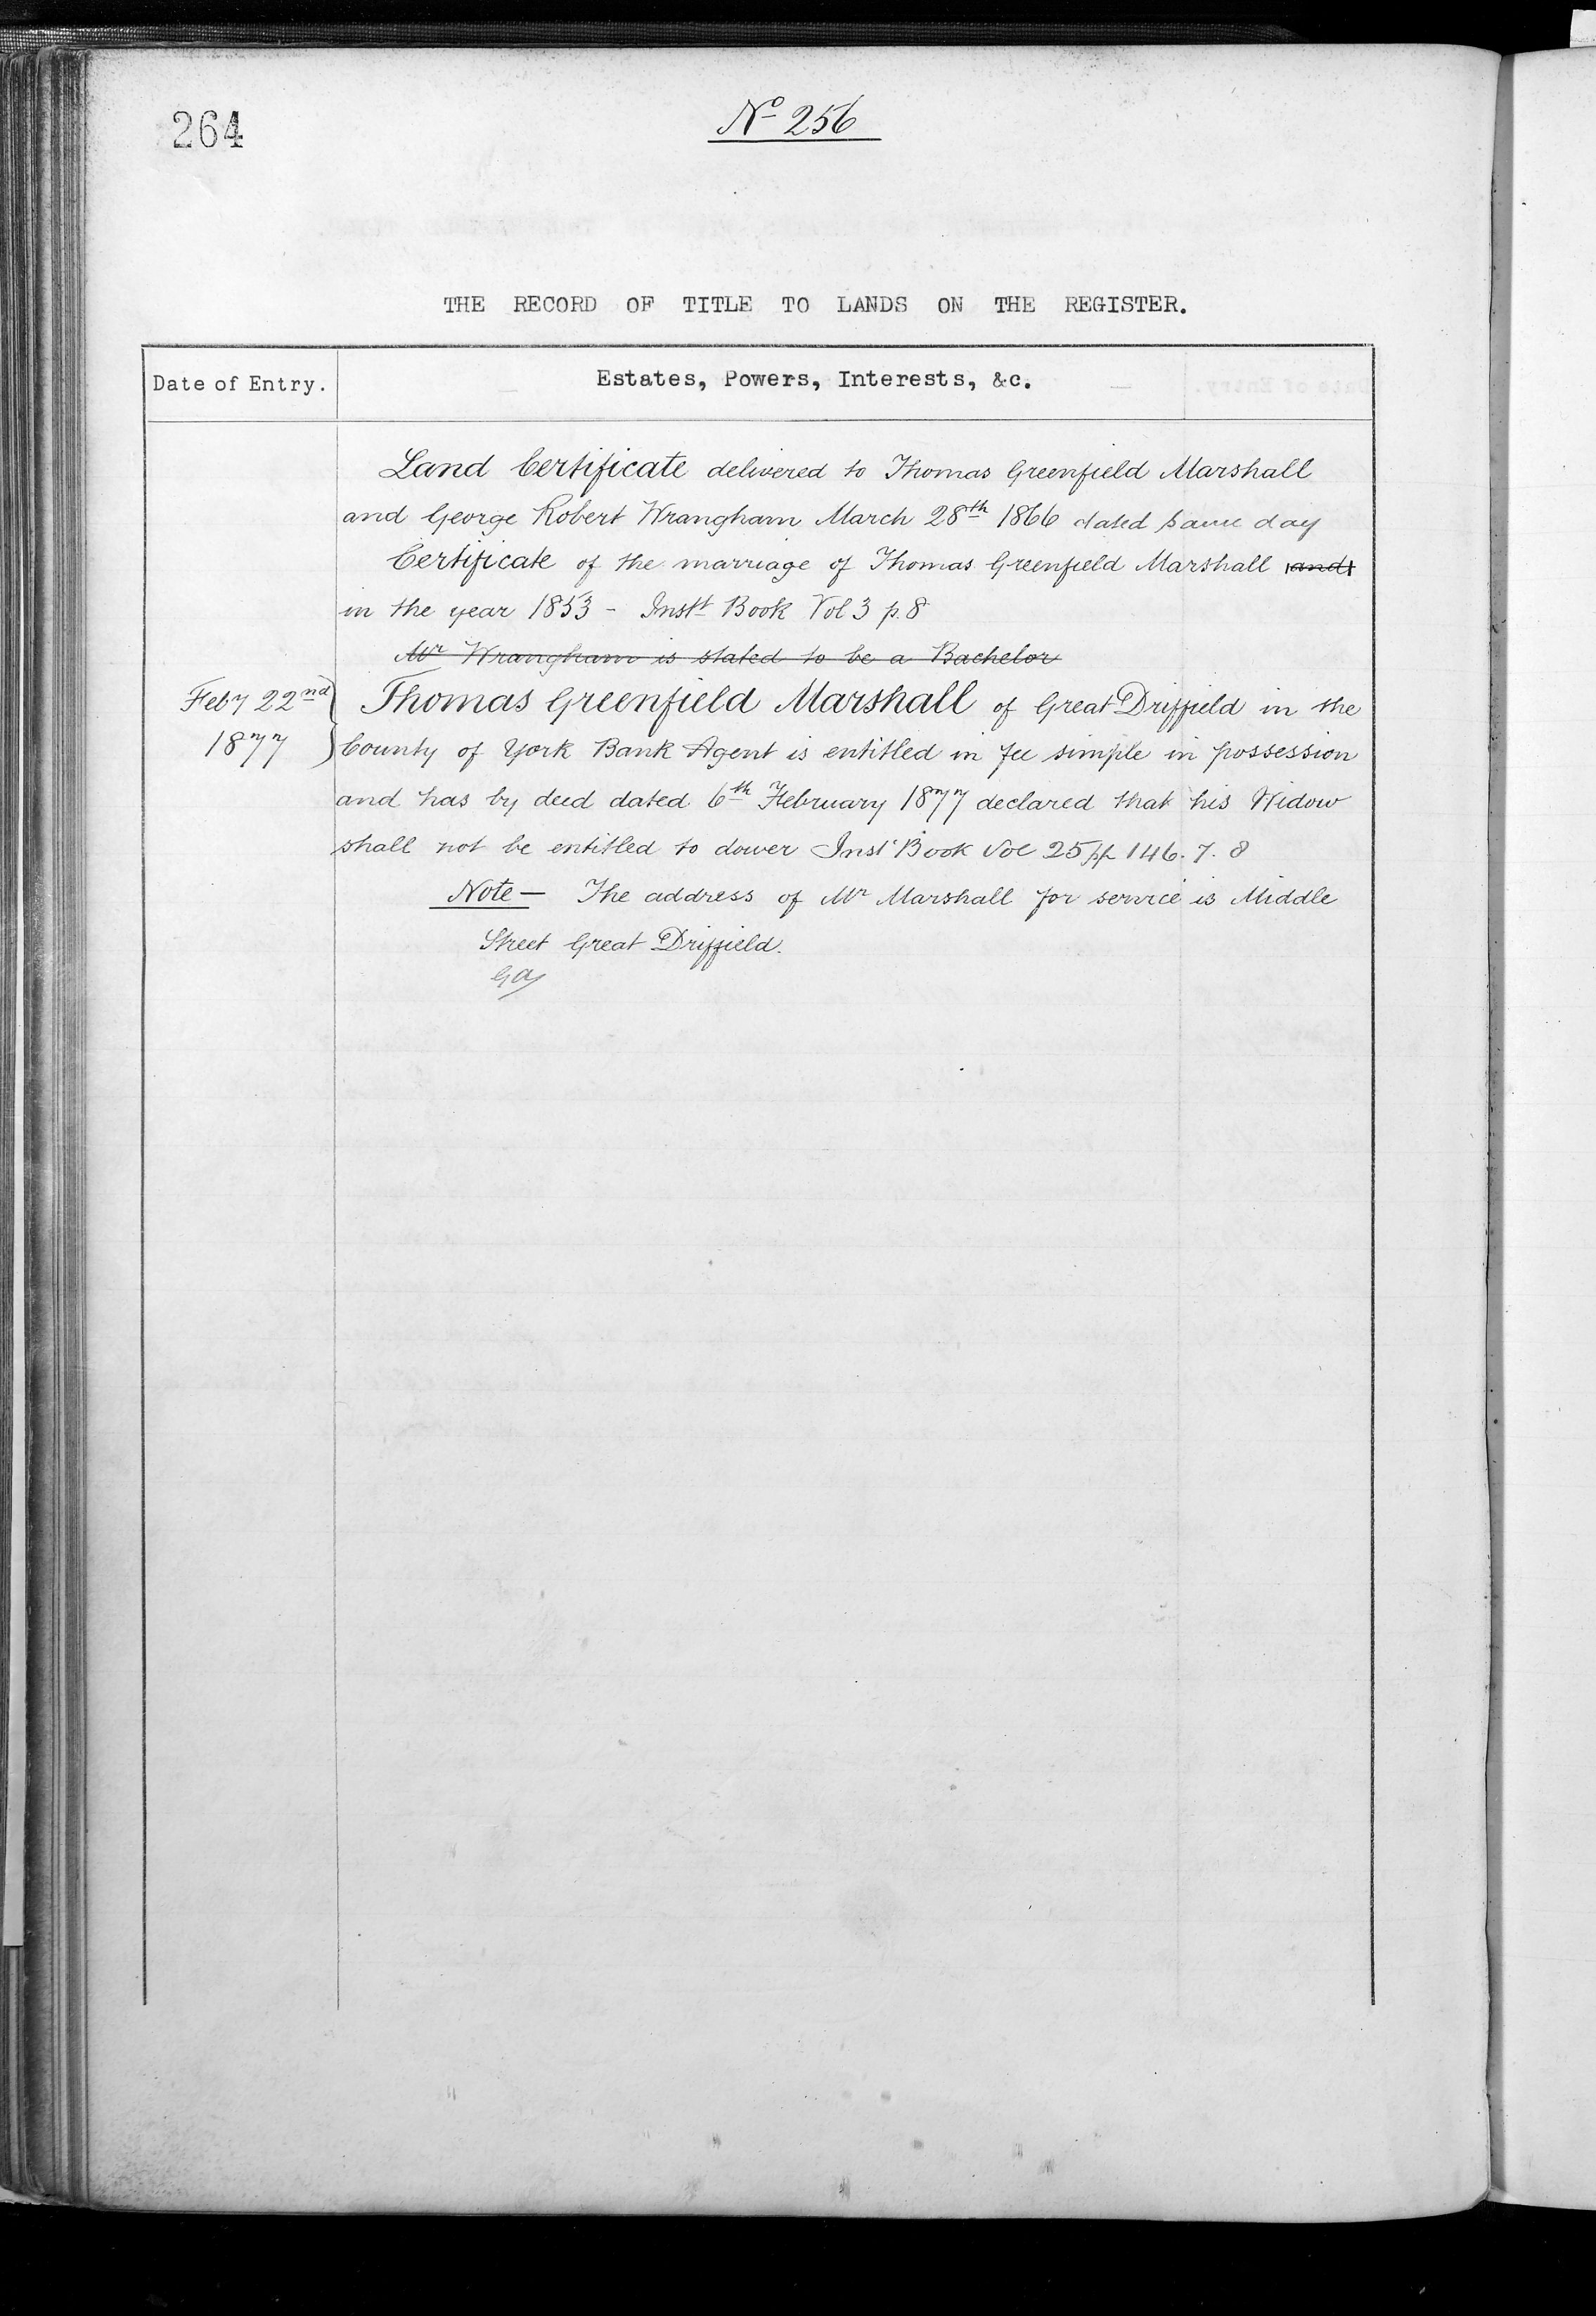 264
No 256
THE RECORD OF TITLE TO LANDS ON THE REGISTER.
Date of Entry.
Estates, Powers, Interests, &c.
Land Certificate delivered to Thomas Greenfield Marshall
and George Robert Wrangham March 28th 1866 dated same day
Certificate of the marriage of Thomas Greenfield Marshall and
in the year 1853 - Instt Book Vol 3 p. 8
Mr Wrangham is stated to be a Bachelor
Feby 22nd
1877
Thomas Greenfield Marshall of Great Driffield in the
County of York Bank Agent is entitled in fee simple in possession
and has by deed dated 6th February 1877 declared that his Widow
shall not be entitled to dower Inst Book Vol 25 pp 146. 7. 8
Note — The address of Mr Marshall for service is Middle
Street Great Driffield.